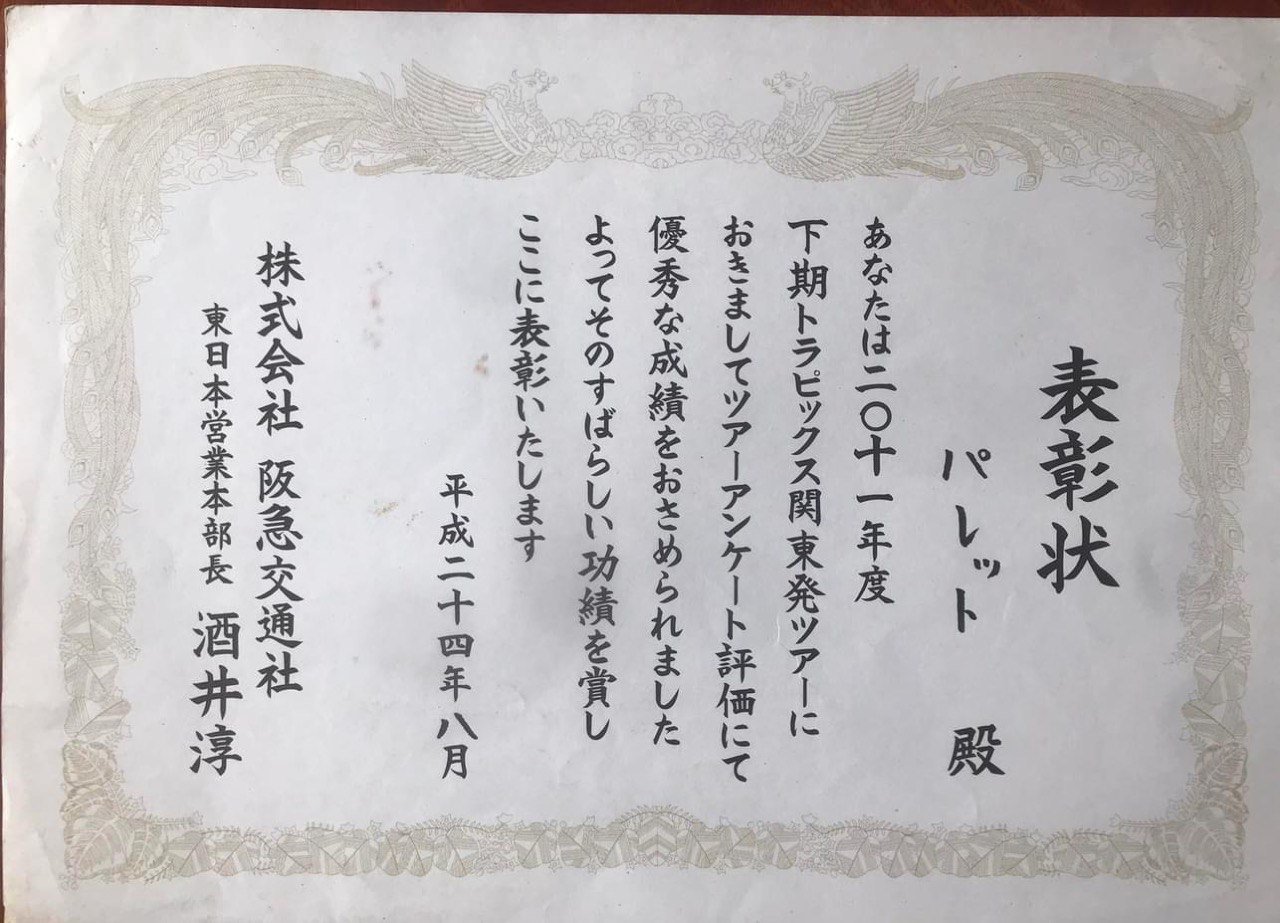 表彰状
パレット 殿
あなたは二〇十一年度
下期トラピックス関東発ツアーに
おきましてツアーアンケート評価にて
優秀な成績をおさめられました
よってそのすばらしい功績を賞し
ここに表彰いたします
平成二十四年八月
株式会社 阪急交通社
東日本営業本部長 酒井淳